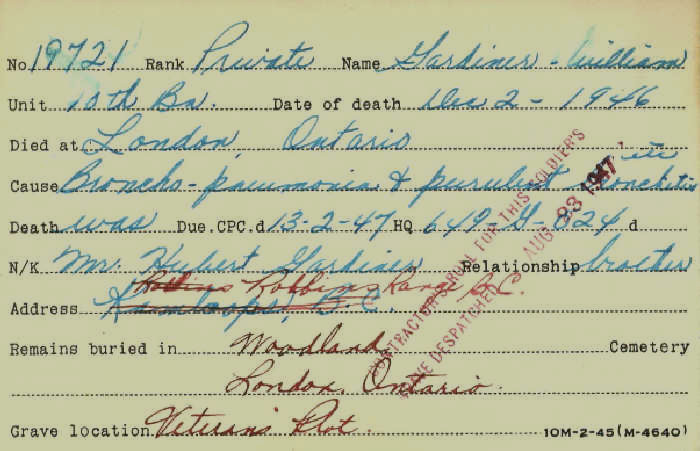 No 19721 Rank Private Name Gardiner - William
Unit 10th Bn. Date of death Dec 2 - 1946
Died at London, Ontario
Cause Broncho-pneumonia & purulent bronchitis
Death was Due. CPC.d 13-2-47 HQ 649-G-824 d
N/K Mr. Hubert Gardiner Relationship brother
Robbins Range B.C.
Address Kamloops, B.C.
CONTRACTOR'S SCROLL FOR THIS SOLDIER'S
GRAVE DESPATCHED AUG 23 1947
Remains buried in Woodland Cemetery
London, Ontario.
Grave location Veterans Plot. 10M-2-45(M-4640)